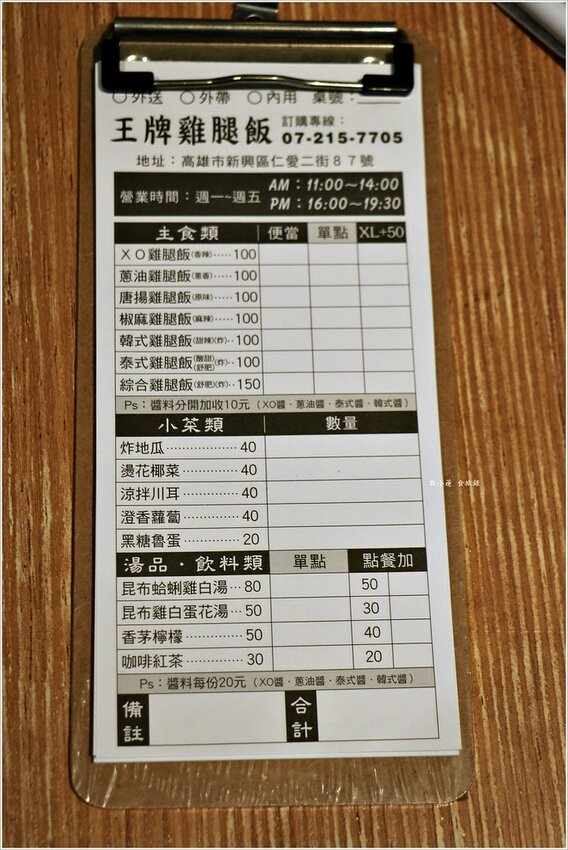 ○外送 ○外帶 ○內用 桌號：
王牌雞腿飯 訂購專線：07-215-7705
地址：高雄市新興區仁愛二街８７號
營業時間：週一~週五 AM：11:00～14:00
PM：16:00～19:30
主食類 便當 單點 XL+50
ＸＯ雞腿飯(香辣)……100
蔥油雞腿飯(蔥香)……100
唐揚雞腿飯(原味)……100
椒麻雞腿飯(麻辣)……100
韓式雞腿飯(甜辣)(炸)‥100
泰式雞腿飯(酸甜)(舒肥)(炸)‥100
綜合雞腿飯(舒肥)(炸)‥150
Ps：醬料分開加收10元（XO醬．蔥油醬．泰式醬．韓式醬）
小菜類 數量
炸地瓜……………… 40
燙花椰菜…………… 40
涼拌川耳…………… 40
澄香蘿蔔…………… 40
黑糖魯蛋…………… 20
湯品．飲料類 單點 點餐加
昆布蛤蜊雞白湯…80 50
昆布雞白蛋花湯…50 30
香茅檸檬…………… 50 40
咖啡紅茶…………… 30 20
Ps：醬料每份20元（XO醬．蔥油醬．泰式醬．韓式醬）
備註 合計